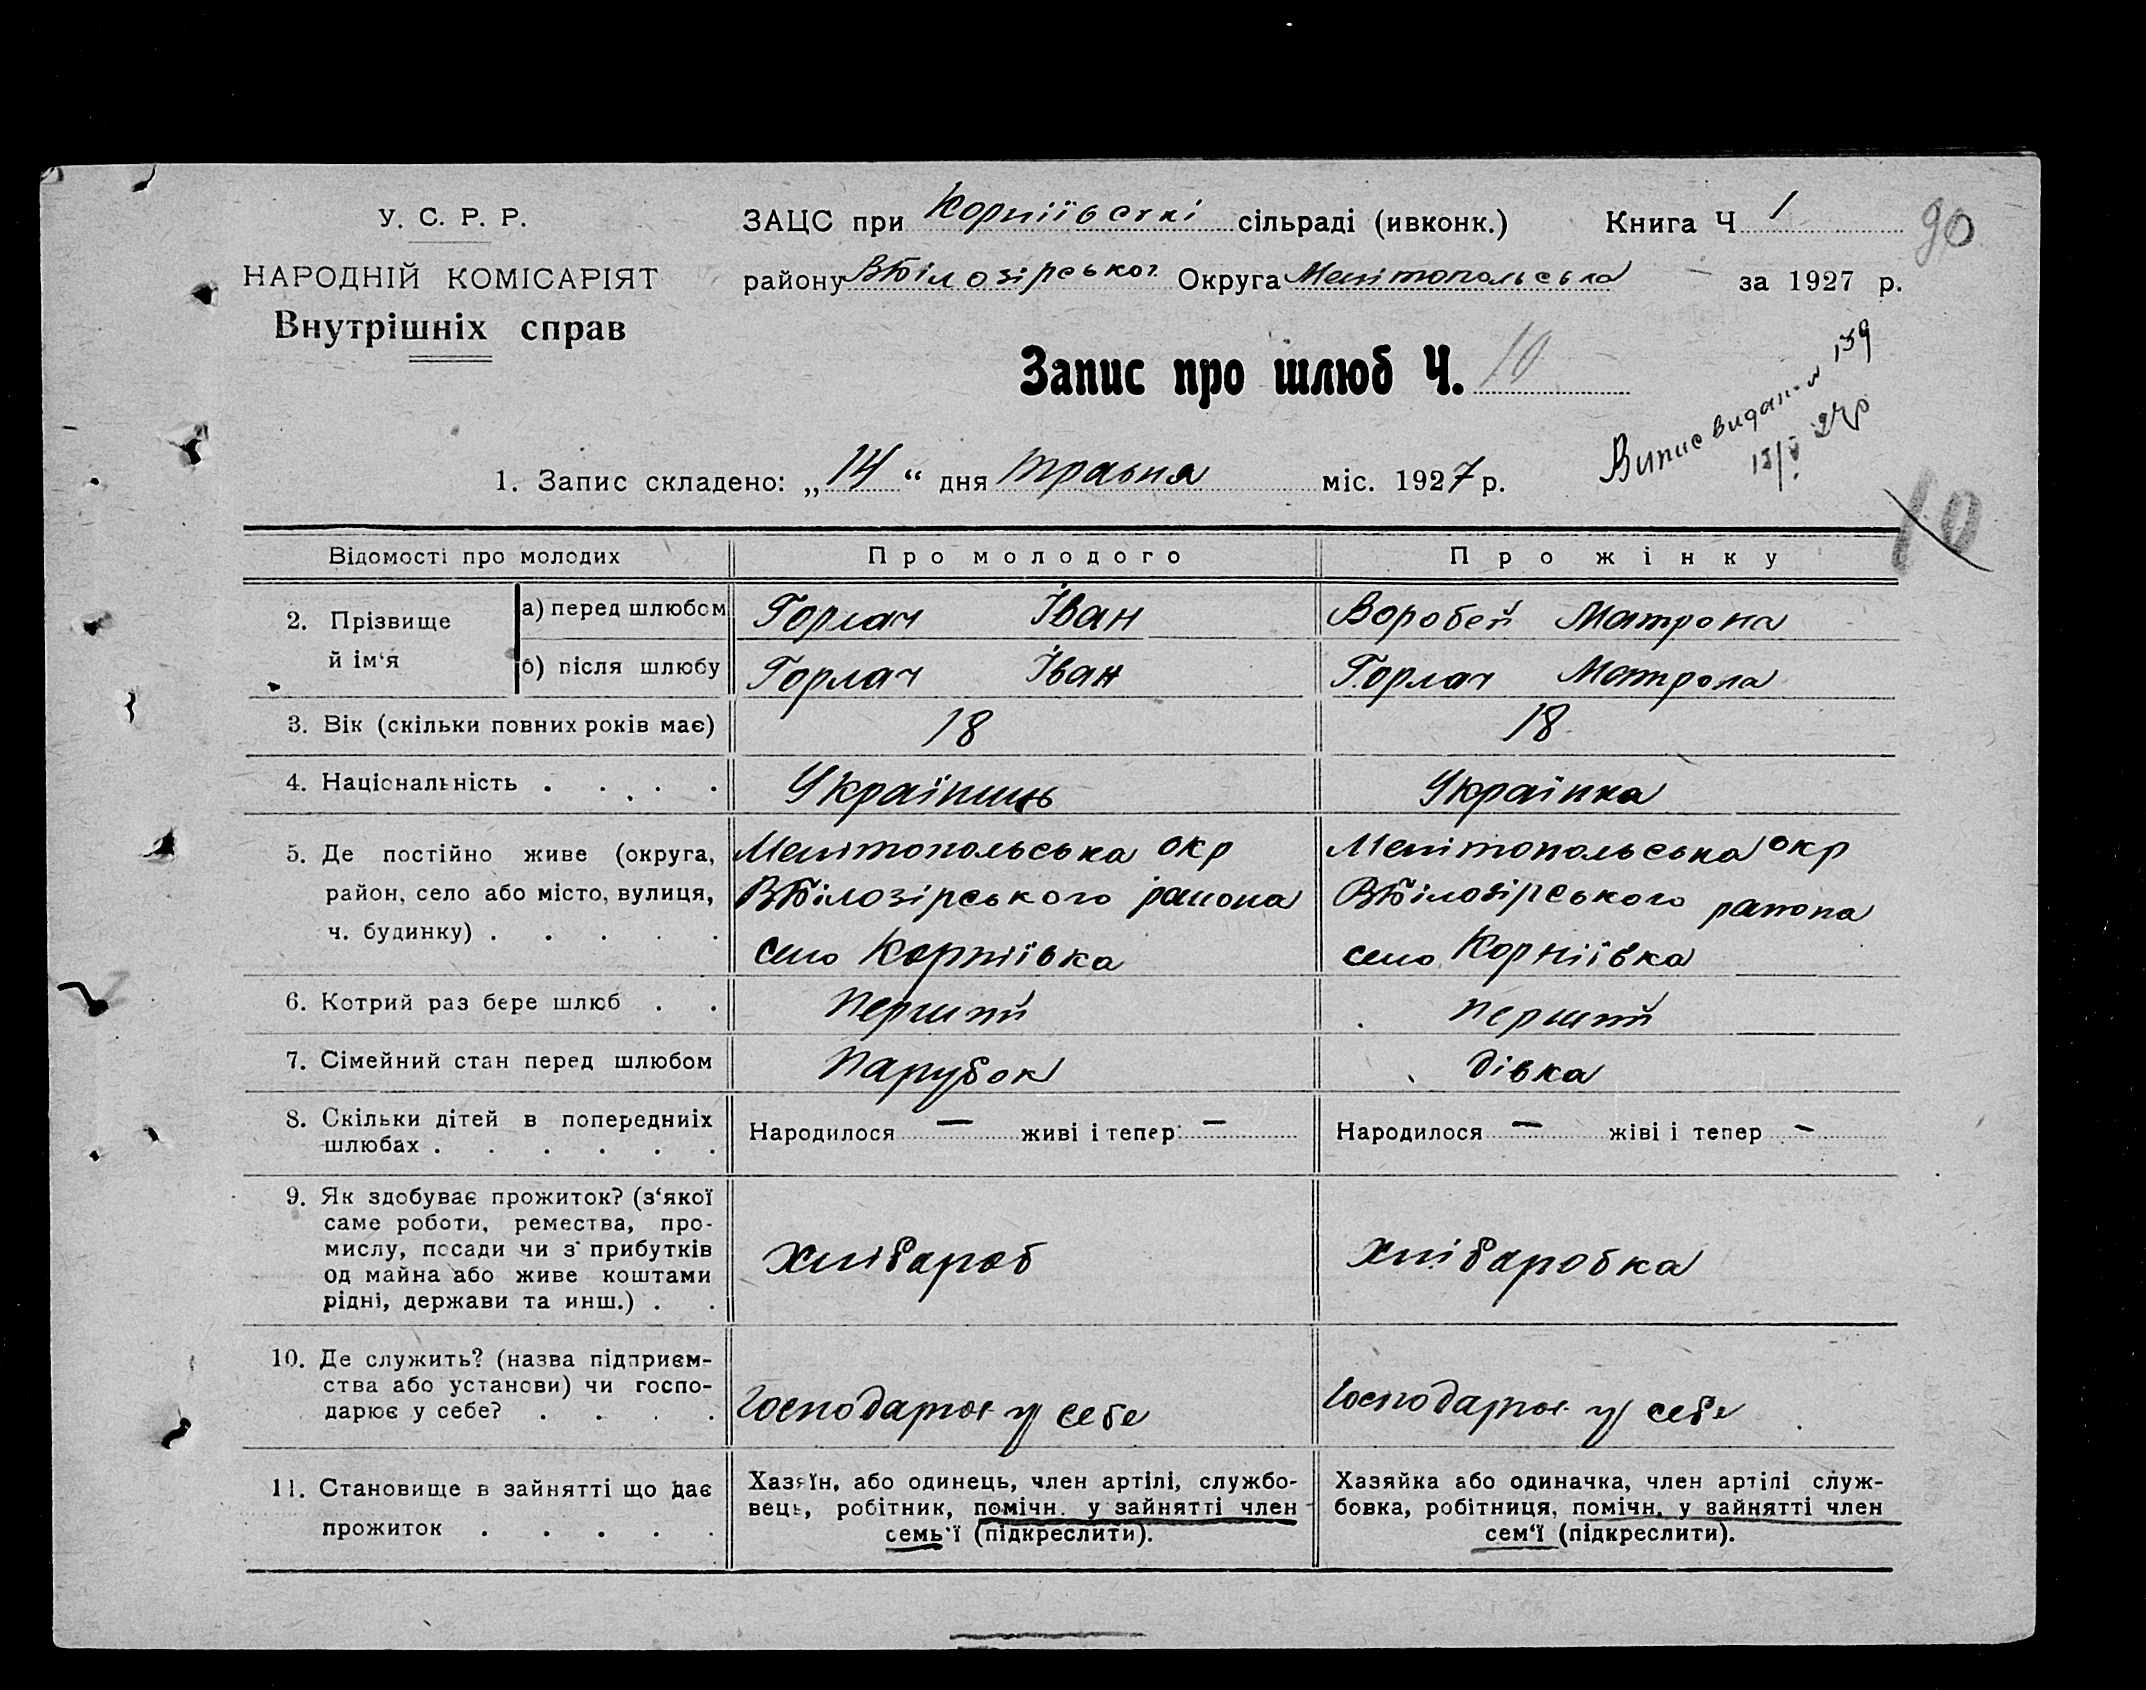 90
У. С. Р. Р.
НАРОДНІЙ КОМІСАРІЯТ
Внутрішніх справ
ЗАЦС при Корніївскі сільраді (ивконк.) Книга Ч 1
району ВБілозірської Округа Мелітопольська за 1927 р.
Запис про шлюб Ч. 10
Випис видан 139
13/V 27р
1. Запис складено: „14“ дня травня міс. 1927 р.
10
Відомості про молодих Про молодого Про жінку
2. Прізвище й ім‘я
а) перед шлюбом Горлач Іван Воробей Матрона
б) після шлюбу Горлач Іван Горлач Матрона
3. Вік (скільки повних років має) 18 18
4. Національність . . . . Українць Українка
5. Де постійно живе (округа,
район, село або місто, вулиця,
ч. будинку) . . . . .
Мелітопольська окр
ВБілозірського района
село Корніївка
Мелітопольська окр
ВБілозірського района
село Корніївка
6. Котрий раз бере шлюб . . Перший Перший
7. Сімейний стан перед шлюбом Парубок дівка
8. Скільки дітей в попередниіх
шлюбах . . . . . .
Народилося — живі і тепер — Народилося — жіві і тепер —
9. Як здобуває прожиток? (з‘якої
саме роботи, ремества, про-
мислу, посади чи з прибутків
од майна або живе коштами
рідні, держави та инш.) . .
Хлібароб Хлібаробка
10. Де служить? (назва підприєм-
ства або установи) чи госпо-
дарює у себе? . . . .
Господарює у себе Господарює у себе
11. Становище в зайнятті що дає
прожиток . . . . .
Хазяїн, або одинець, член артілі, службо-
вець, робітник, помічн. у зайнятті член
семь‘ї (підкреслити).
Хазяйка або одиначка, член артілі служ-
бовка, робітниця, помічн. у зайнятті член
сем‘ї (підкреслити).